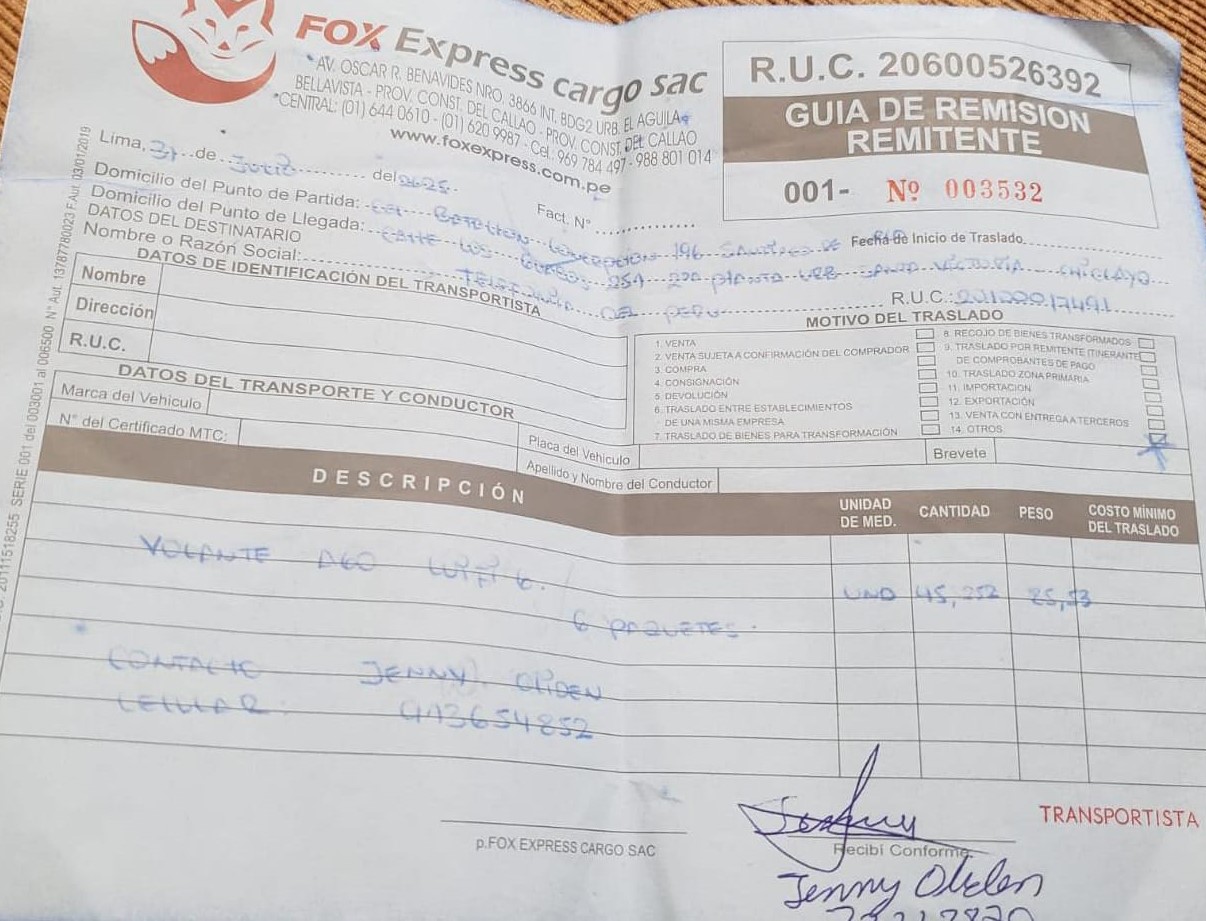 FOX Express cargo sac
AV. OSCAR R. BENAVIDES NRO. 3866 INT. BDG2 URB. EL AGUILA
BELLAVISTA - PROV. CONST. DEL CALLAO - PROV. CONST. DEL CALLAO
*CENTRAL: (01) 644 0610 - (01) 620 9987 - Cel.: 969 784 497 - 988 801 014
www.foxexpress.com.pe
R.U.C. 20600526392
GUIA DE REMISION
REMITENTE
001- Nº 003532
Lima, 31 de Julio del 2025.
Fact. N°
Domicilio del Punto de Partida: Concepcion 196 Santiago de
Fecha de Inicio de Traslado
Domicilio del Punto de Llegada: Calle Los 254 2do planta URB Santa Victoria - Chiclayo
DATOS DEL DESTINATARIO
Nombre o Razón Social: Telefonica del Peru
R.U.C.: 20100017491
DATOS DE IDENTIFICACIÓN DEL TRANSPORTISTA
Nombre
Dirección
R.U.C.
MOTIVO DEL TRASLADO
1. VENTA
2. VENTA SUJETA A CONFIRMACIÓN DEL COMPRADOR
3. COMPRA
4. CONSIGNACIÓN
5. DEVOLUCIÓN
6. TRASLADO ENTRE ESTABLECIMIENTOS
DE UNA MISMA EMPRESA
7. TRASLADO DE BIENES PARA TRANSFORMACIÓN
8. RECOJO DE BIENES TRANSFORMADOS
9. TRASLADO POR REMITENTE ITINERANTE
DE COMPROBANTES DE PAGO
10. TRASLADO ZONA PRIMARIA
11. IMPORTACION
12. EXPORTACIÓN
13. VENTA CON ENTREGA A TERCEROS
14. OTROS
DATOS DEL TRANSPORTE Y CONDUCTOR
Marca del Vehículo
Placa del Vehículo
Brevete
N° del Certificado MTC:
Apellido y Nombre del Conductor
DESCRIPCIÓN
UNIDAD
DE MED.
CANTIDAD
PESO
COSTO MÍNIMO
DEL TRASLADO
VOLANTE AGO WIFI 6.
UND 45,252 25,53
6 PAQUETES.
CONTACTO JENNY OLIDEN
CELULAR 913654852
p.FOX EXPRESS CARGO SAC
Recibí Conforme
TRANSPORTISTA
Jenny Oliden
SERIE 001 del 003001 al 006500 N° Aut. 13787780023 F.Aut. 03/01/2019